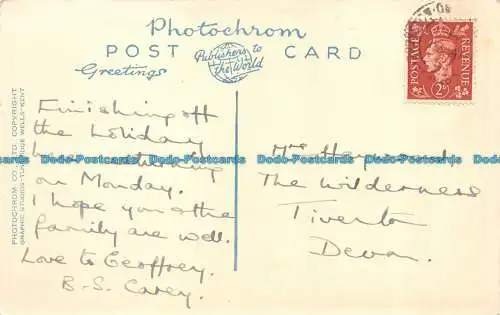 Photochrom
POST CARD
Publishers to the World
Greetings
POSTAGE REVENUE
2D
PHOTOCHROM CO. LTD. COPYRIGHT
GRAPHIC STUDIOS TUNBRIDGE WELLS KENT
Finishing off
the holiday
here returning
on Monday.
I hope you & the
family are well.
Love to Geoffrey.
B.S. Carey.
Mrs
The Wilderness
Tiverton
Devon.
Dodo-Postcards Dodo-Postcards Dodo-Postcards Dodo-Postcards Dodo-Postcards